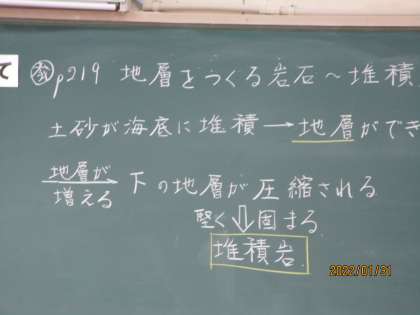 て
教p219 地層をつくる岩石~堆積
土砂が海底に堆積→地層ができ
地層が
増える
下の地層が圧縮される
堅く⇩固まる
堆積岩
2022/01/31